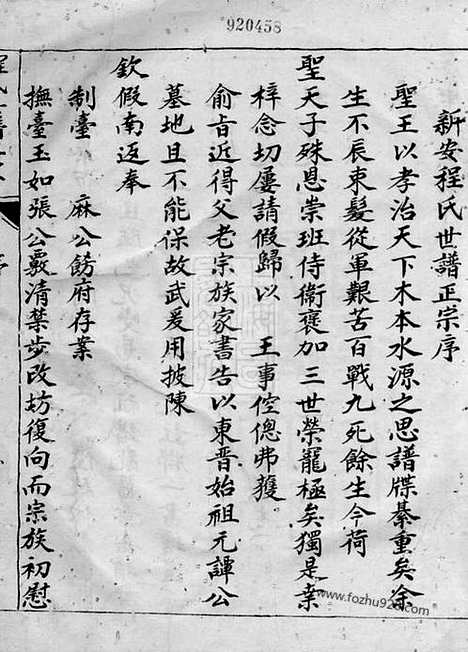 920458
新安程氏世譜正宗序
聖王以孝治天下木本水源之思譜牒綦重矣余
生不辰束髮從軍艱苦百戰九死餘生今荷
聖天子殊恩崇班侍衛褒加三世榮寵極矣獨是桑
梓念切屢請假歸以王事倥傯弗獲
俞旨近得父老宗族家書告以東晋始祖元譚公
墓地且不能保故武爰用披陳
欽假南返奉
制臺麻公飭府存案
撫臺玉如張公覈清禁步改坊復向而宗族初慰
www.fozhu920.com